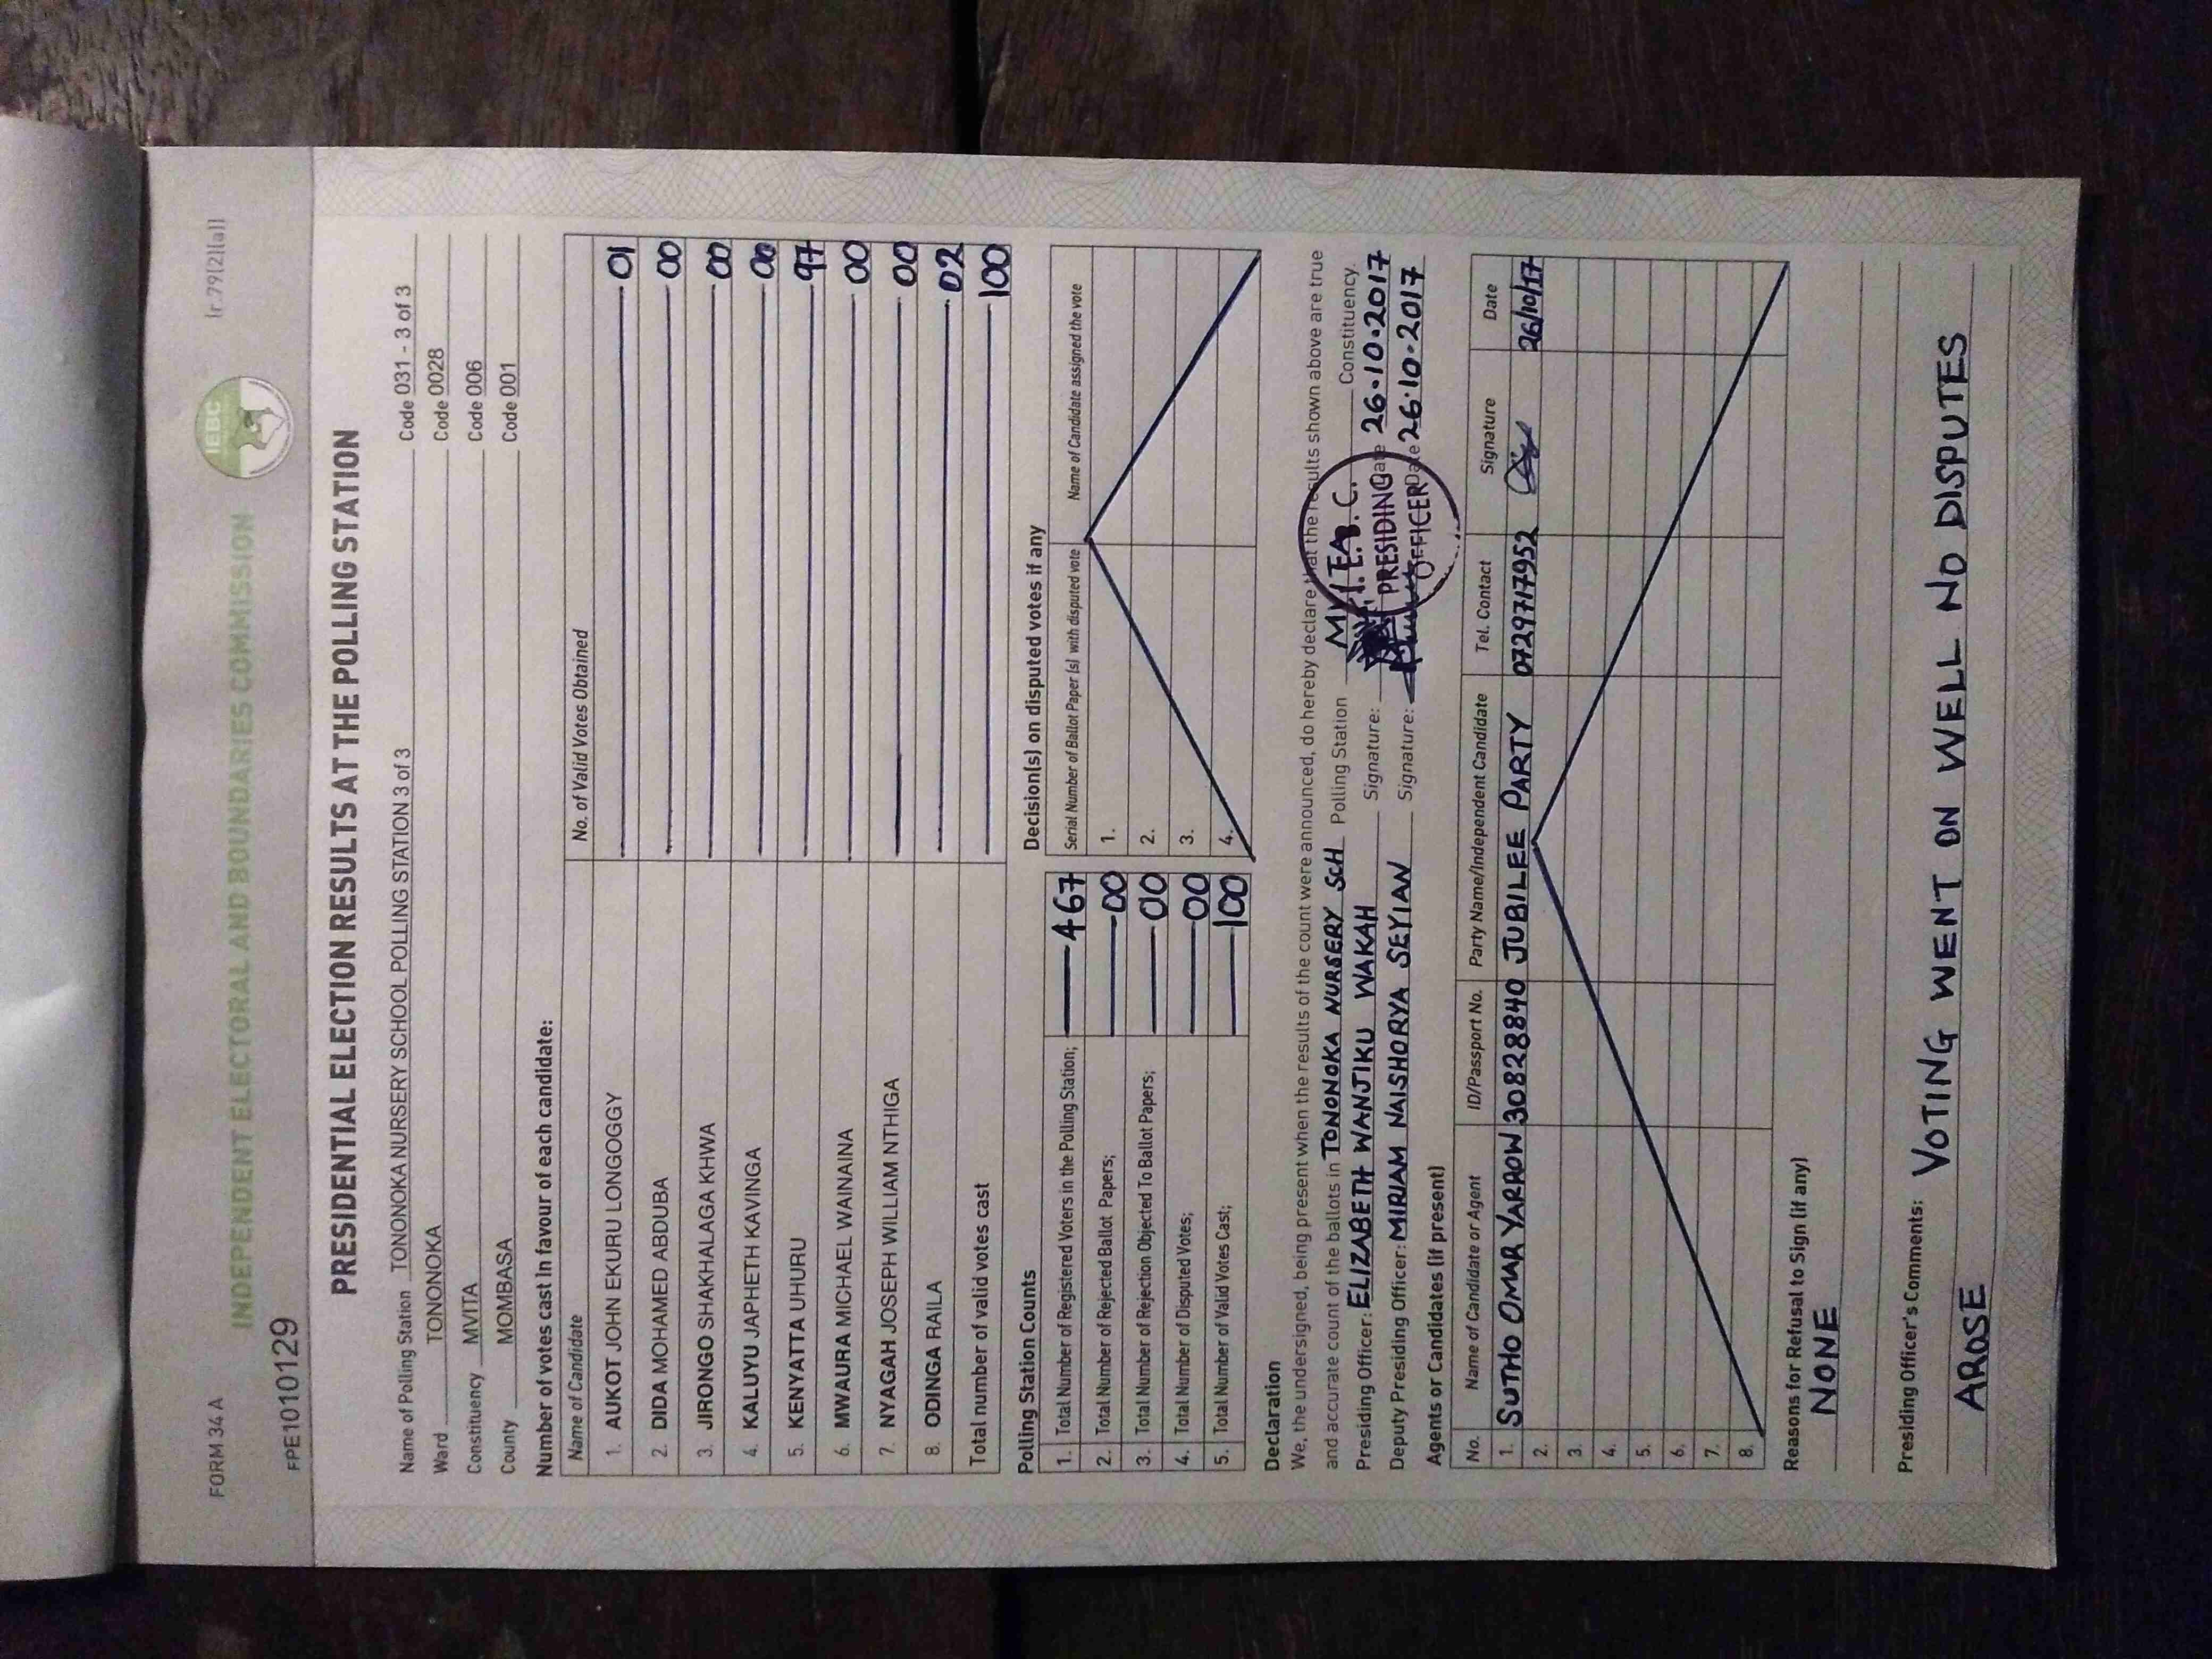 FORM 34 A
IEBC
(r.79(2)(a))
INDEPENDENT ELECTORAL AND BOUNDARIES COMMISSION
FPE1010129
PRESIDENTIAL ELECTION RESULTS AT THE POLLING STATION
Name of Polling Station TONONOKA NURSERY SCHOOL POLLING STATION 3 of 3 Code 031 - 3 of 3
Ward TONONOKA Code 0028
Constituency MVITA Code 006
County MOMBASA Code 001
Number of votes cast in favour of each candidate:
Name of Candidate No. of Valid Votes Obtained
1. AUKOT JOHN EKURU LONGOGGY 01
2. DIDA MOHAMED ABDUBA 00
3. JIRONGO SHAKHALAGA KHWA 00
4. KALUYU JAPHETH KAVINGA 00
5. KENYATTA UHURU 97
6. MWAURA MICHAEL WAINAINA 00
7. NYAGAH JOSEPH WILLIAM NTHIGA 00
8. ODINGA RAILA 02
Total number of valid votes cast 100
Polling Station Counts
1. Total Number of Registered Voters in the Polling Station; 467
2. Total Number of Rejected Ballot Papers; 00
3. Total Number of Rejection Objected To Ballot Papers; 00
4. Total Number of Disputed Votes; 00
5. Total Number of Valid Votes Cast; 100
Decision(s) on disputed votes if any
Serial Number of Ballot Paper (s) with disputed vote Name of Candidate assigned the vote
1.
2.
3.
4.
Declaration
We, the undersigned, being present when the results of the count were announced, do hereby declare that the results shown above are true
and accurate count of the ballots in TONONOKA NURSERY SCH Polling Station Constituency.
Presiding Officer: ELIZABETH WANJIKU WAKAH Signature: Date 26.10.2017
Deputy Presiding Officer: MIRIAM NAISHORYA SEYIAN Signature: Date 26.10.2017
I.E.B.C.
PRESIDING
OFFICER
Agents or Candidates (if present)
No. Name of Candidate or Agent ID/Passport No. Party Name/Independent Candidate Tel. Contact Signature Date
1. SUTHO OMAR YARROW 30828840 JUBILEE PARTY 0729717952 26/10/17
2.
3.
4.
5.
6.
7.
8.
Reasons for Refusal to Sign (if any)
NONE
Presiding Officer's Comments: VOTING WENT ON WELL NO DISPUTES
AROSE